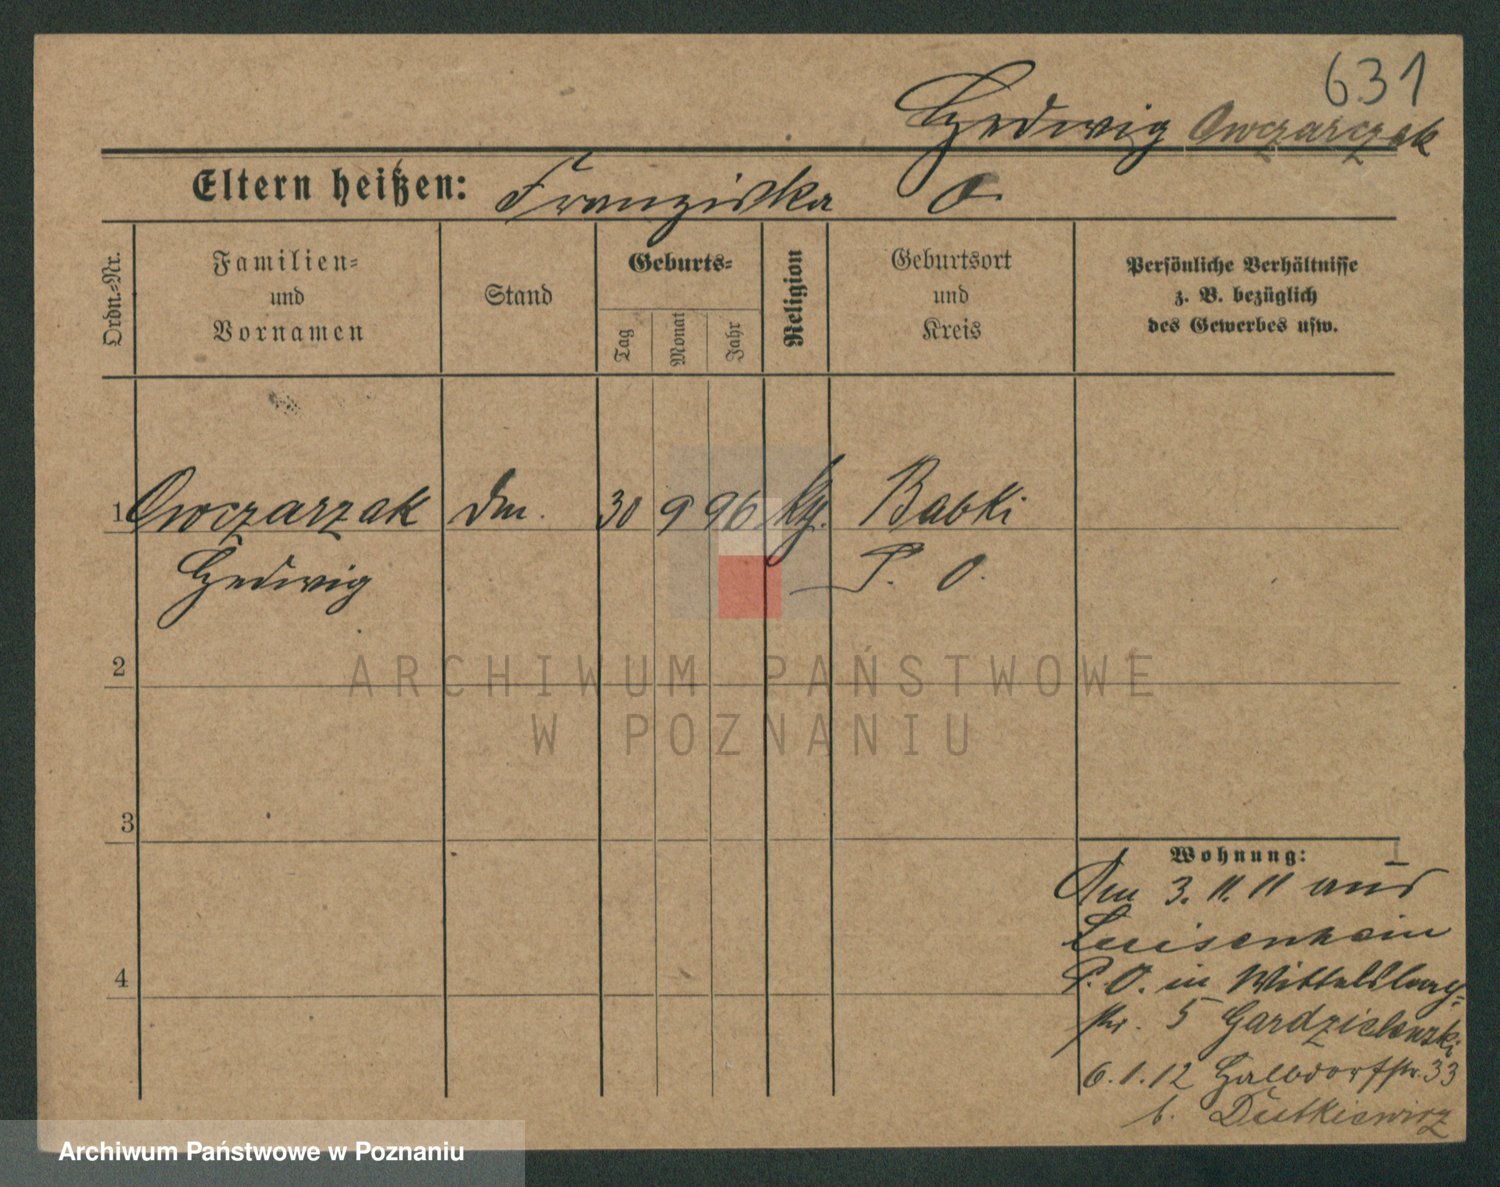 631
Hedwig Owczarczak
Eltern heißen: Franziska O.
Ordn.=Nr.
Familien=
und
Vornamen
Stand
Geburts=
Tag
Monat
Jahr
Religion
Geburtsort
und
Kreis
Persönliche Verhältnisse
z. B. bezüglich
des Gewerbes usw.
1 Owczarzak 30 9 96 Babki
Hedwig P. O.
ARCHIWUM PAŃSTWOWE
W POZNANIU
2
3
4
Wohnung:
Am 3. 11. 11 aus
Luisenhain
P. O. in Wittelsbacg=
str. 5
6.1.12 Halbdorfstr. 33
b. Dutkiewicz
Archiwum Państwowe w Poznaniu